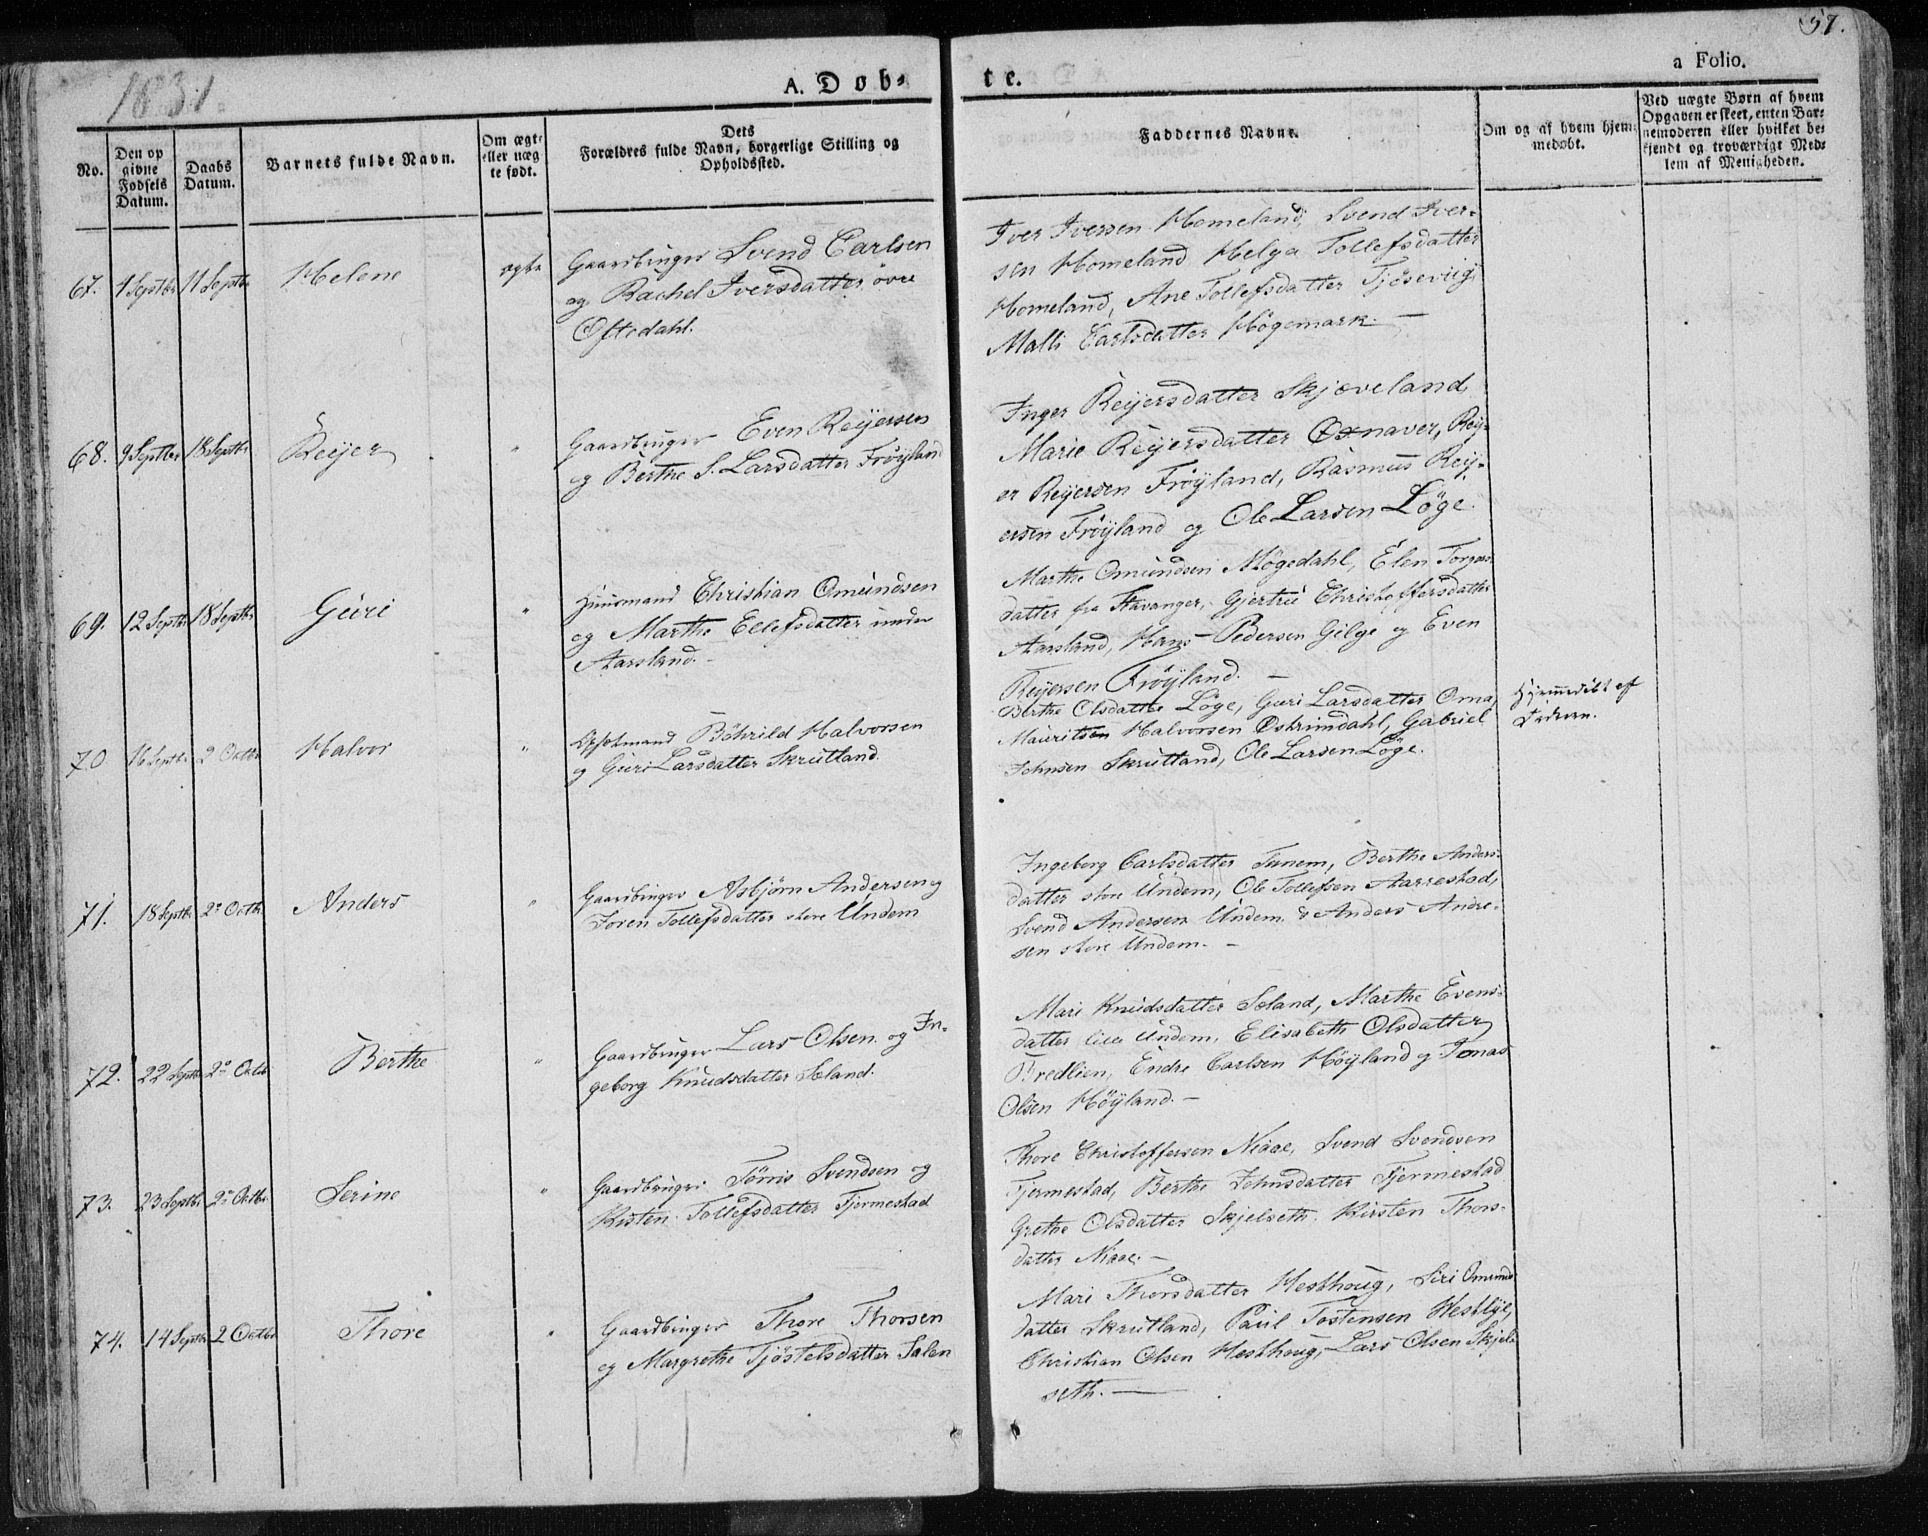 1831
57.
A. Døb-
te.
a Folio.
No.
Den op
givne
Fødsels
Datum.
Daabs
Datum.
Barnets fulde Navn.
Om ægte
eller uæg
te født.
Dets
Forældres fulde Navn, borgerlige Stilling og
Opholdssted.
Faddernes Navne.
Om og af hvem hjem-
medøbt.
Ved uægte Børn af hvem
Opgaven er skeet, enten Bar-
nemoderen eller hvilket be-
kjendt og troværdigt Med-
lem af Menigheden.
67. 1 Septbr 11 Septbr Helene ægte
Gaardbruger Svend Carlsen
og Rachel Iversdatter øvre
Oftedahl.
Iver Iversen Homeland, Svend Iver-
sen Homeland Helga Tollefsdatter
Homeland, Ane Tollefsdatter Tjøseviig
Malli Carlsdatter Høgemark. —
68. 9 Septbr 18 Septbr Reijer "
Gaardbruger Even Reijersen
og Berthe S. Larsdatter Frøyland
Inger Reijersdatter Skjæveland
Marie Reijersdatter Oxnaver, Reij-
er Reijersen Frøyland, Rasmus Reij-
ersen Frøyland og Ole Larsen Løge.
69. 12 Septbr 18 Septbr Guri "
Huusmand Christian Omundsen
og Marthe Ellefsdatter under
Aarsland. —
Marthe Omundsen Møgedahl, Elen
datter fra Stavanger, Gjertru Christoffersdatter
Aarsland, Hans Pedersen Gilge og Even
Reijersen Frøyland. —
70 16 Septbr 2 Octbr Halvor "
Bøhrild Halvorsen
og Guri Larsdatter Skrutland.
Berthe Olsdatter Løge, Guri Larsdatter Oma,
Mauritsen Halvorsen Oskrimdahl, Gabriel
Johnsen Skrutland, Ole Larsen Løge.
Hjemmedøbt af
Faderen.
71. 18 Septbr 2 Octbr Anders "
Gaardbruger Asbjørn Andersen og
Joren Tollefsdatter store Undem
Ingeborg Carlsdatter Tunem, Berthe Anders-
datter store Undem, Ole Tollefsen Aarrestad,
Svend Andersen Undem & Anders Andre-
sen store Undem. —
72. 22 Septbr 2 Octbr Berthe "
Gaardbruger Lars Olsen og In-
geborg Knudsdatter Søland.
Mari Knudsdatter Søland, Marthe Evens-
datter lille Undem, Elisabeth Olsdatter
Bredlien, Endre Carlsen Høyland og Jonas
Olsen Høyland. —
73. 23 Septbr 2 Octbr Serine "
Gaardbruger Tørris Svendsen og
Kisten Tollefsdatter Fjermestad
Thore Christoffersen Niaae, Svend Svendsen
Fjermestad, Berthe Johnsdatter Fjermestad
Grethe Olsdatter Skjelseth. Kirsten Thors-
datter Niaae. —
74. 14 Septbr 2 Octbr Thore "
Gaardbruger Thore Thorsen
og Margrethe Tjøstelsdatter Salen
Mari Thorsdatter Hesthoug, Siri Omunds
datter Skrutland, Paul Tostensen Hestlye,
Christian Olsen Hesthoug, Lars Olsen Skjel-
seth. —